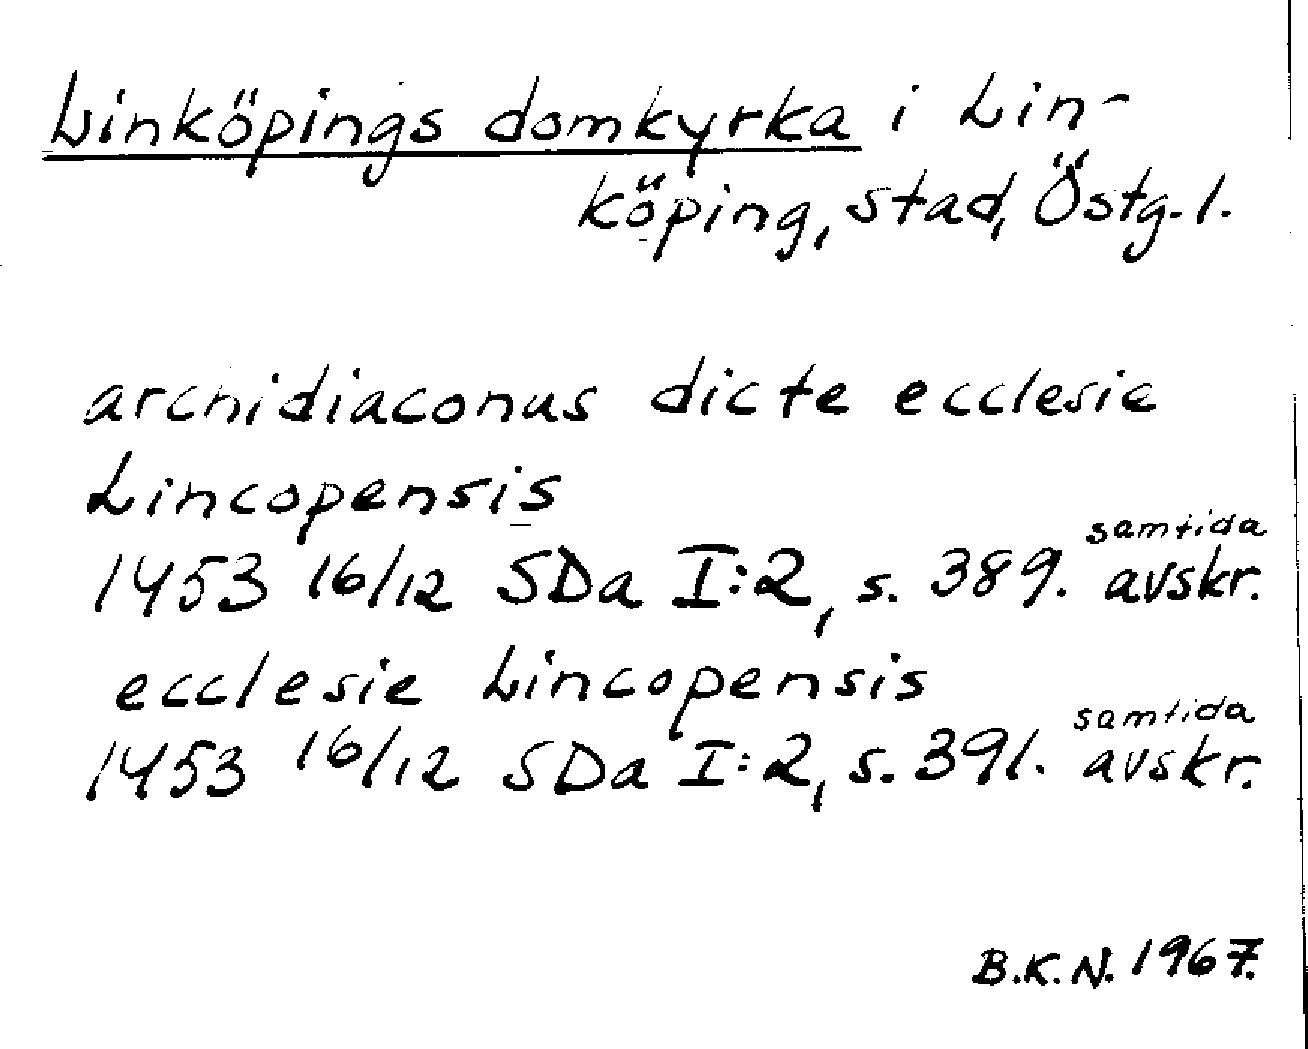 Linköpings domkyrka i Lin-
köping, stad, Östg. l.
archidiaconus dicte ecclesie
Lincopensis
1453 16/12 SDa I:2, s. 389. samtida avskr.
ecclesie Lincopensis
1453 16/12 SDa I:2, s. 391. samtida avskr.
B.K.N. 1967.